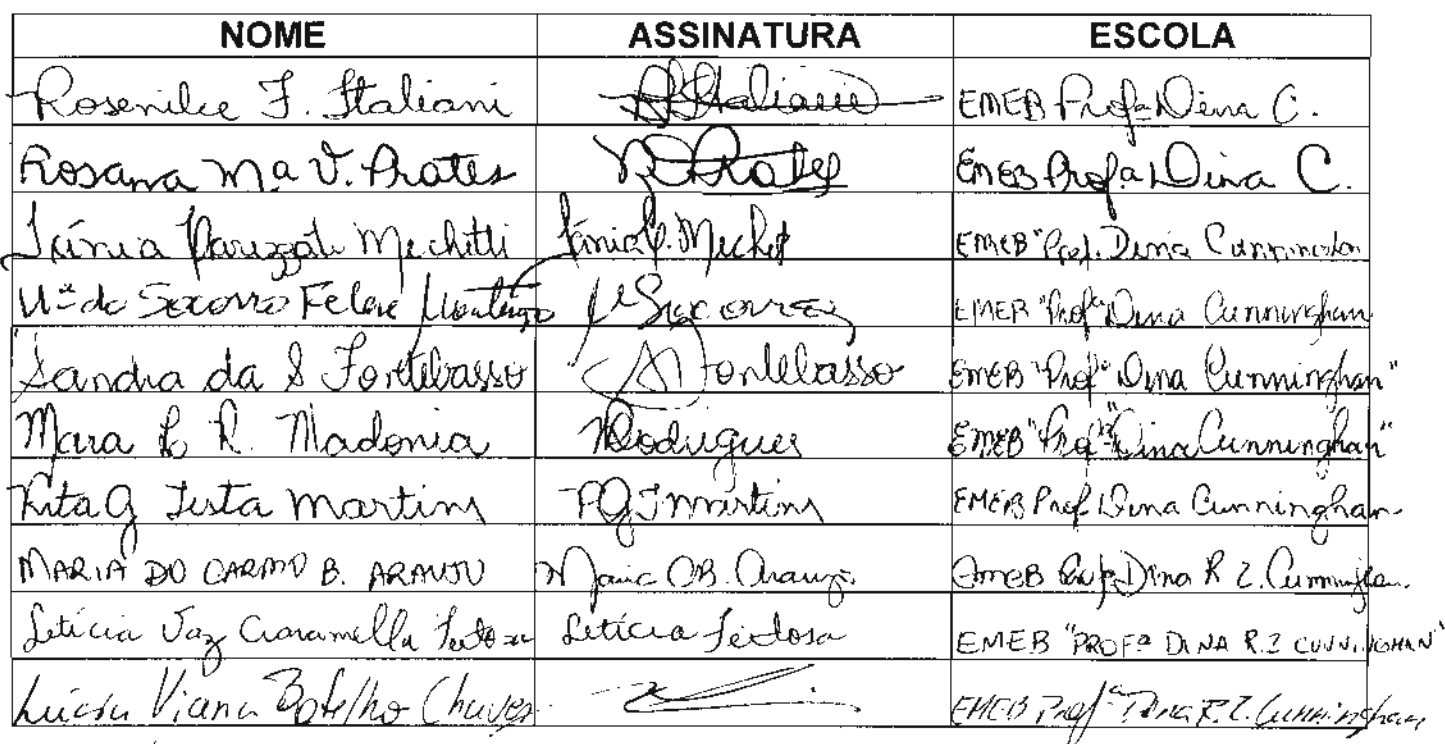 NOME ASSINATURA ESCOLA
Rosenilce F. Italiani Italiani EMEB Profª Dina C.
Rosana Mª V. Prates Prates EMEB Profª Dina C.
Tânia Mechitti Tânia P. EMEB "Prof. Dina
Mª do Socorro Felex Socorro EMEB "Profª Dina Cunningham
Sandra da S Fontebasso Fontebasso EMEB "Profª Dina Cunningham"
Mara R. Madonia Rodrigues EMEB "Profª Dina Cunninghan"
Rita G Testa Martins RGTMartins EMEB Prof Dina Cunninghan
MARIA DO CARMO B. ARAUJO Maria CB. Araujo. EMEB Profª Dina R Z.
Letícia Vaz Ciaramella Feitosa Letícia Feitosa EMEB "PROFª DINA R.Z CUNNINGHAN"
Lúcia Viana Botelho Chaves EMEB Profª Dina R.Z. Cunningham